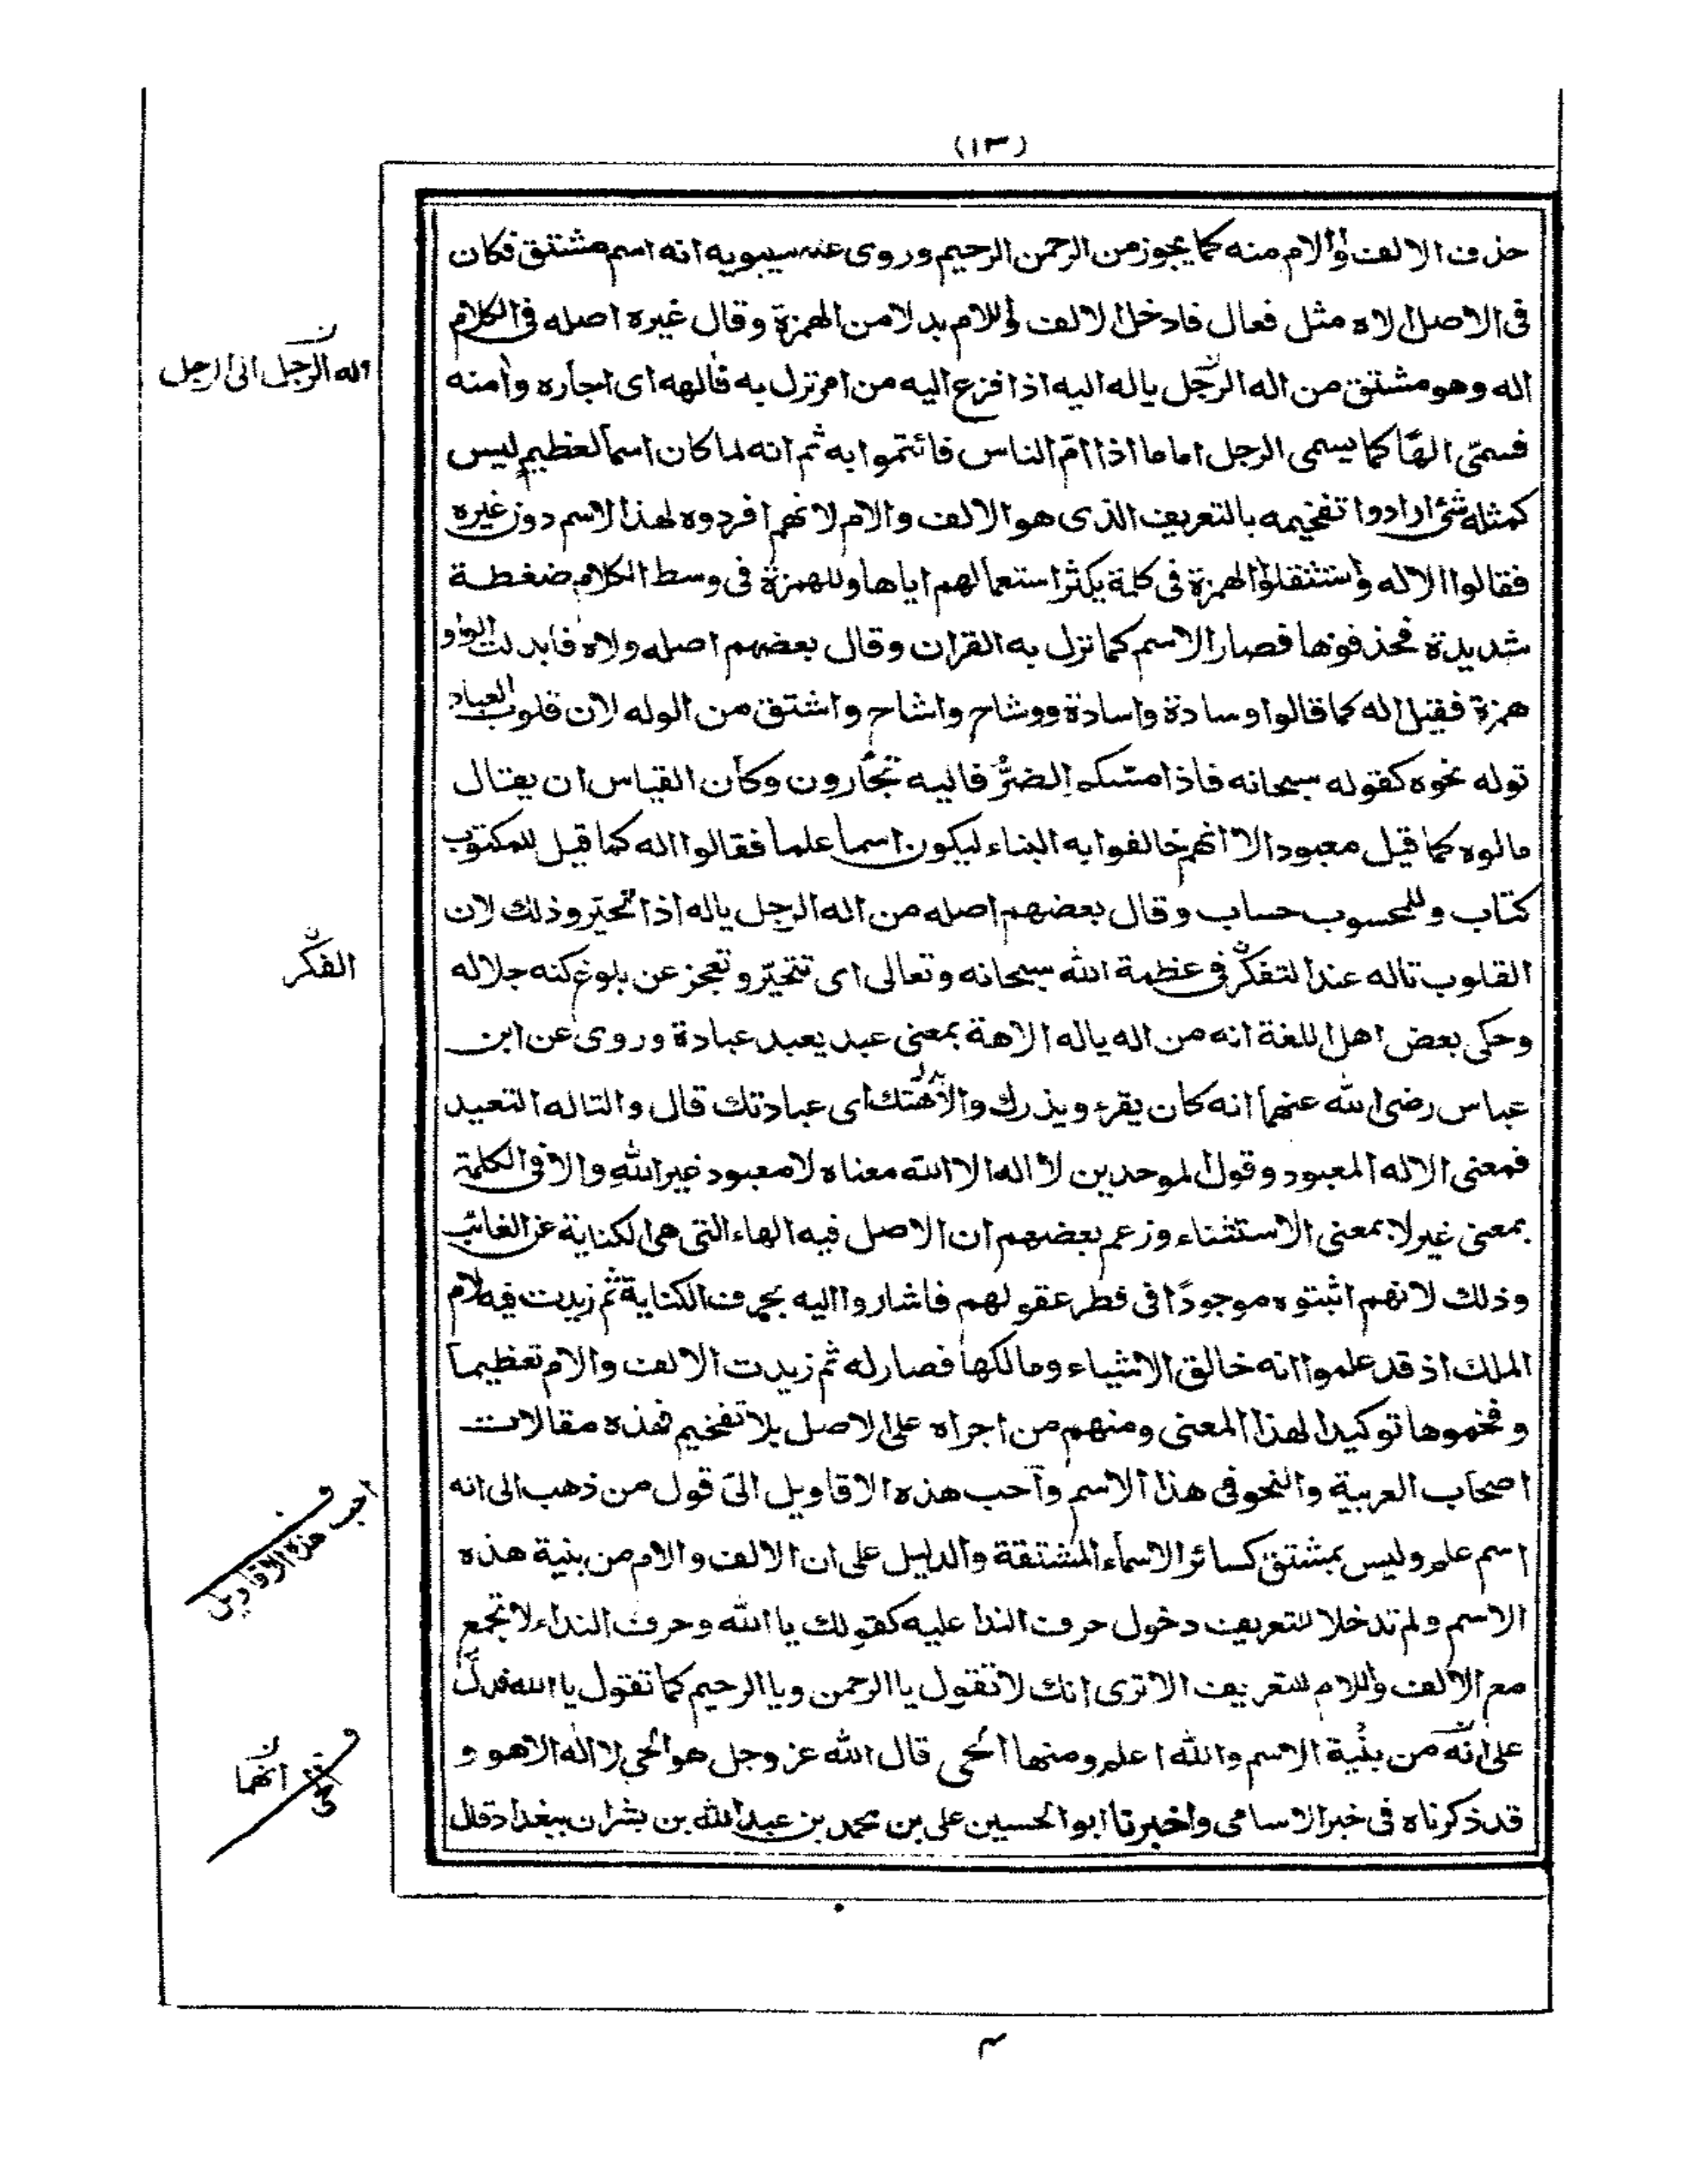 (١٣)
حذف الالف والام منه كما يجوز من الرحمن الرحيم وروى عنه سيبويه انه اسم مشتق فكان
فى الاصل الاه مثل فعال فادخل الالف واللام بدلا من الهمزة وقال غيره اصله فى الكلام
اله وهو مشتق من اله الرجل ياله اليه اذا فزع اليه من امر نزل به فألهه اى اجاره وأمنه
فسمّى الهًا كما يسمى الرجل اماما اذا امّ الناس فائتموا به ثم انه لما كان اسما لعظيم ليس
كمثله شئ ارادوا تفخيمه بالتعريف الذى هو الالف والام لانهم افردوه لهذا الاسم دون غيره
فقالوا الاله واستثقلوا الهمزة فى كلمة يكثر استعمالهم اياها وللهمزة فى وسط الكلام ضغطة
شديدة فحذفوها فصار الاسم كما نزل به القران وقال بعضهم اصله ولاه فابدلت الواو
همزة فقيل اله كما قالوا وسادة واسادة ووشاح واشاح واشتق من الوله لان قلوب العباد
توله نحوه كقوله سبحانه فاذا مسّكم الضرّ فاليه تجأرون وكان القياس ان يقال
مالوه كما قيل معبود الا انهم خالفوا به البناء ليكون اسما علما فقالوا اله كما قيل للمكتوب
كتاب وللمحسوب حساب وقال بعضهم اصله من اله الرجل ياله اذا تحيّر وذلك لان
القلوب تاله عند التفكّر فى عظمة الله سبحانه وتعالى اى تتحيّر وتعجز عن بلوغ كنه جلاله
وحكى بعض اهل اللغة انه من اله ياله الاهة بمعنى عبد يعبد عبادة وروى عن ابن
عباس رضى الله عنهما انه كان يقرء ويذرك والاهتك اى عبادتك قال والتاله التعبد
فمعنى الاله المعبود وقول الموحدين لا اله الا الله معناه لا معبود غير الله والا فى الكلمة
بمعنى غير لا بمعنى الاستثناء وزعم بعضهم ان الاصل فيه الهاء التى هى الكناية عن الغائب
وذلك لانهم اثبتوه موجودًا فى فطر عقولهم فاشاروا اليه بحرف الكناية ثم زيدت فيه لام
الملك اذ قد علموا انه خالق الاشياء ومالكها فصار له ثم زيدت الالف والام تعظيما
وفخموها توكيدا لهذا المعنى ومنهم من اجراه على الاصل بلا تفخيم فهذه مقالات
اصحاب العربية والنحو فى هذا الاسم وأحب هذه الاقاويل الىّ قول من ذهب الى انه
اسم علم وليس بمشتق كسائر الاسماء المشتقة والدليل على ان الالف والام من بنية هذه
الاسم ولم تدخلا للتعريف دخول حرف الندا عليه كقولك يا الله وحرف النداء لا تجمع
مع الالف واللام للتعريف الا ترى انك لا تقول يا الرحمن ويا الرحيم كما تقول يا الله فدلّ
على انّه من بنية الاسم والله اعلم ومنها الحى قال الله عز وجل هو الحى لا اله الا هو و
قد ذكرناه فى خبر الاسامى واخبرنا ابو الحسين على بن محمد بن عبد الله بن بشران ببغداد قال
ن
اله الرجل الى الرجل
ن
الفكّر
احب هذه الاقاويل
ن
انهما